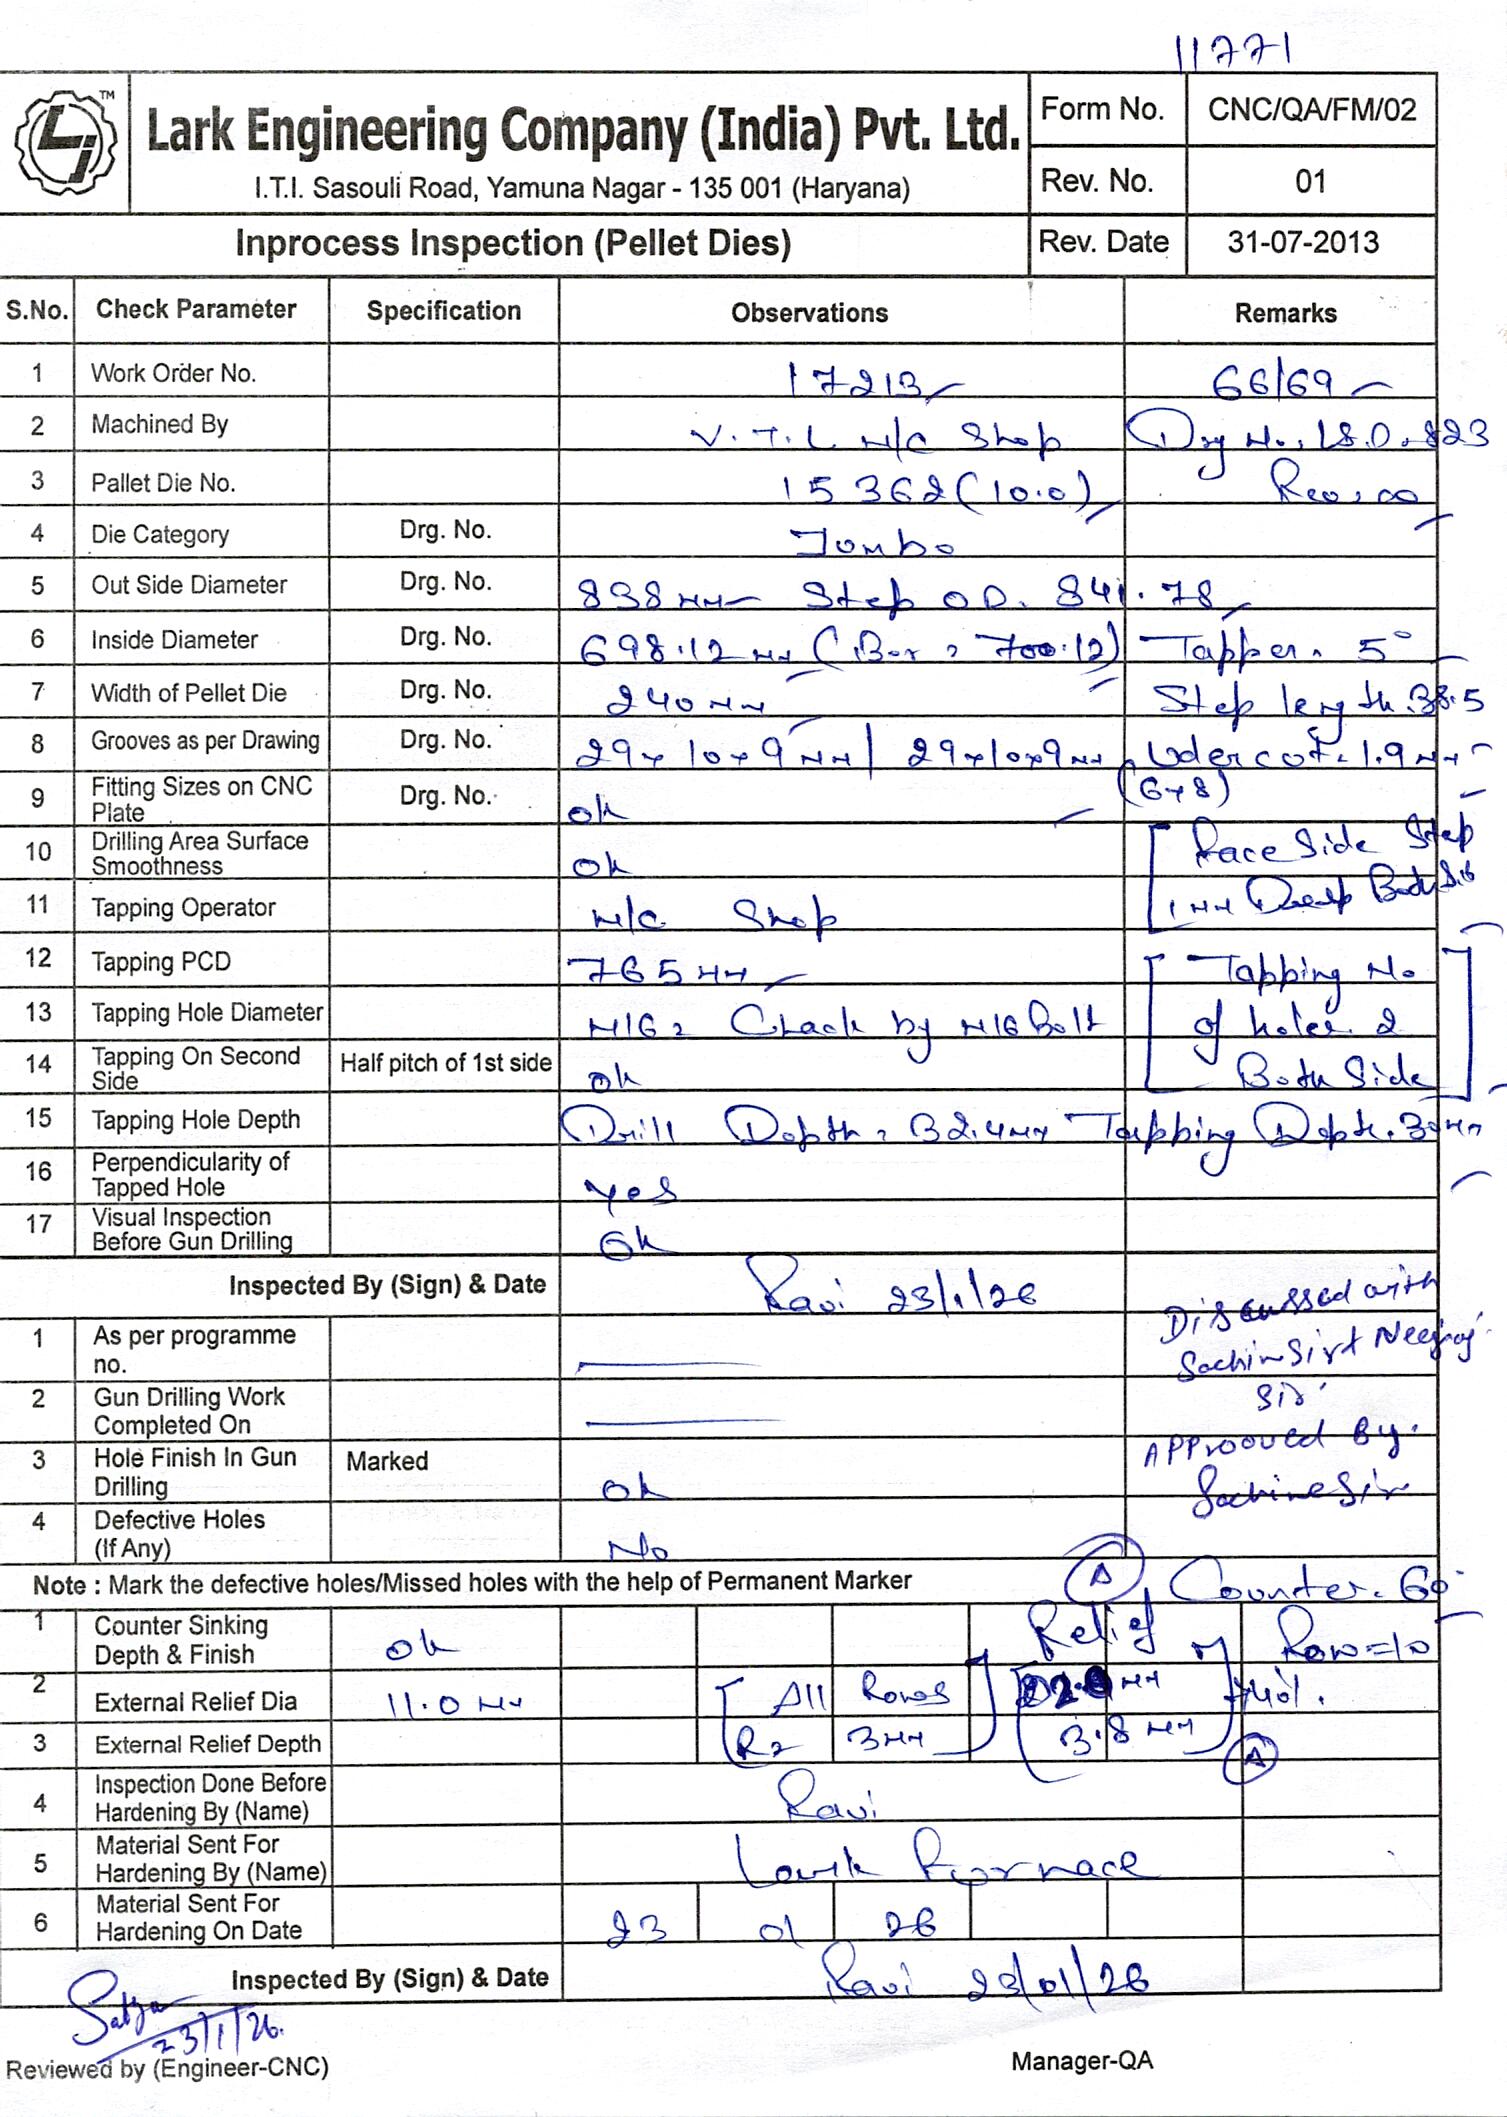 11771
Lark Engineering Company (India) Pvt. Ltd.
I.T.I. Sasouli Road, Yamuna Nagar - 135 001 (Haryana)
Form No. CNC/QA/FM/02
Rev. No. 01
Inprocess Inspection (Pellet Dies) Rev. Date 31-07-2013
S.No. Check Parameter Specification Observations Remarks
1 Work Order No. 17213 66/69
2 Machined By V.T.L M/C Shop Drg No. LS.D.823
3 Pallet Die No. 15362 (10.0) Rev. 00
4 Die Category Drg. No. Jumbo
5 Out Side Diameter Drg. No. 838 mm Step OD. 841.78
6 Inside Diameter Drg. No. 698.12 mm ( 700.12) Tapper. 5°
7 Width of Pellet Die Drg. No. 240 mm Step length. 38.5
8 Grooves as per Drawing Drg. No. 29x10x9 mm / 29x10x9mm Udercut. 1.9 mm
(6x8)
9 Fitting Sizes on CNC Plate Drg. No. ok
10 Drilling Area Surface Smoothness ok Face Side Step
11 Tapping Operator M/C Shop 1 mm Deep Both
12 Tapping PCD 765 mm Tapping No
13 Tapping Hole Diameter M16 = Chack by M16 Bolt of holes 2
14 Tapping On Second Side Half pitch of 1st side ok Both Side
15 Tapping Hole Depth Drill Depth = 32.4mm Tapping Depth. 30mm
16 Perpendicularity of Tapped Hole Yes
17 Visual Inspection Before Gun Drilling Ok
Inspected By (Sign) & Date Ravi 23/1/26
Discussed with
Sachin Sir + Neeraj
Sir.
Approoved By.
Sachine Sir
1 As per programme no.
2 Gun Drilling Work Completed On
3 Hole Finish In Gun Drilling Marked ok
4 Defective Holes (If Any) No
Note : Mark the defective holes/Missed holes with the help of Permanent Marker A Counter. 60°
1 Counter Sinking Depth & Finish ok Relief Row=10
2 External Relief Dia 11.0 mm All Rows
3 External Relief Depth R2 3mm 3.8 mm A
4 Inspection Done Before Hardening By (Name) Ravi
5 Material Sent For Hardening By (Name) Lark Furnace
6 Material Sent For Hardening On Date 23 01 26
Inspected By (Sign) & Date Ravi 23/01/26
Satya
23/1/26.
Reviewed by (Engineer-CNC) Manager-QA